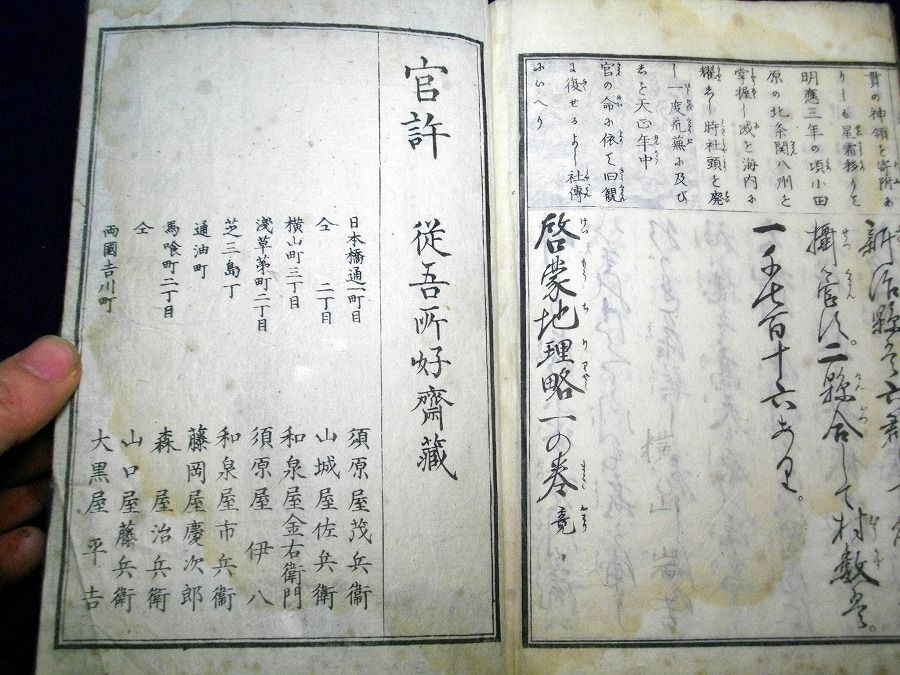 貫の神領を寄附あ
りしも星霜移りを
明應三年の頃小田
原の北条関八州を
掌握し威を海内に
耀せし時社頭を廃
し一度荒蕪に及び
しを天正年中
官の命に依て旧観
に復せるよし社傳
にいへり
新治縣
攝管す。二縣合して村数
一千七百十六あり。
啓蒙地理略一の巻竟
けいもうちりりやく
官許 從吾所好齋藏
日本橋通一町目 須原屋茂兵衞
仝 二丁目 山城屋佐兵衞
横山町三丁目 和泉屋金右衞門
淺草茅町二丁目 須原屋伊八
芝三島丁 和泉屋市兵衞
通油町 藤岡屋慶次郎
馬喰町二丁目 森屋治兵衞
仝 山口屋藤兵衞
両國吉川町 大黒屋平吉